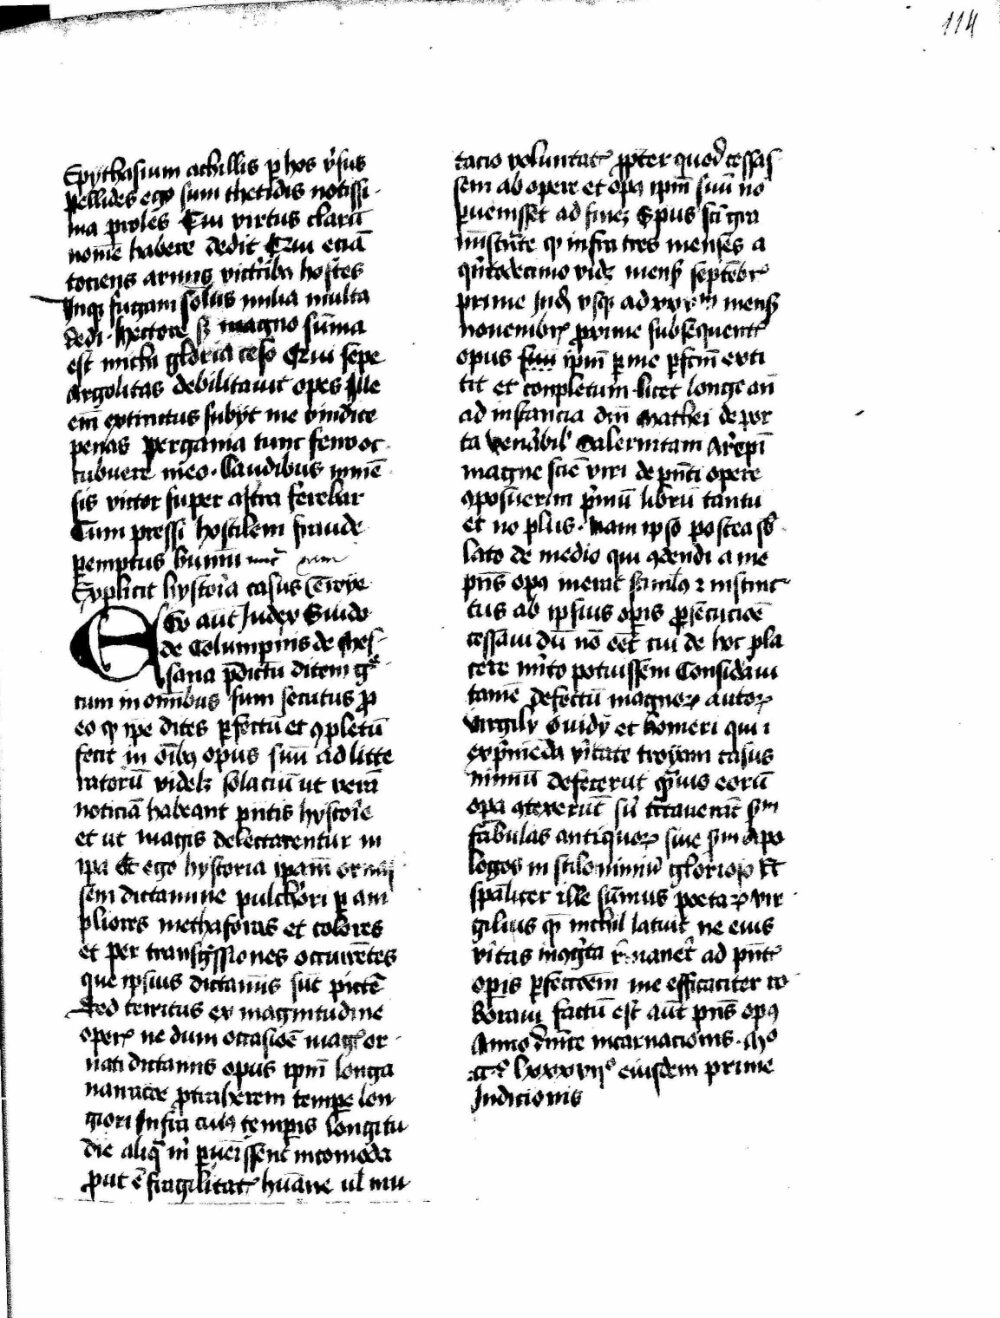 114
Epythafium achillis p hos v̉sus
pellides ego sum thetidis notissi
ma proles Cui virtus clarū
nomē habere dedit Cui eciā
tociens armis victribꝫ hostes
Inqꝫ fugam solus milia multa
dedi hectore sꝫ magno sūma
est michi gloria ceso Qui sepe
Argolicas debilitauit opes Ille
em̄ extinctus subyt me vindice
penas pergama tunc ferro oc
cubuere meo Laudibus īmē
sis victor super astra ferebar
Cum pressi hostilem fraude
pemptus humū
Explicit hystoria casus troye
Ego aūt Judex Guido
de Columpnis de Mes
sana p̄dictū ditem g̉
cum in omībus sum secutus p
eo ꝙ ipe dites ꝑfectū et ꝯpletū
fecit in oībꝫ opus suū ad litte
ratorū videlꝫ solaciū ut verā
noticiā habeant p̄ntis hystorie
et ut magis delectarentur in
ipa Et ego hystoria ipam̄
sem dictamine pulchrori ꝑ am
pliores methaforas et colores
et per transg̉ssiones occurrētes
que ipsius dictamīs sūt pictē
Sed territus ex magnitudine
operꝭ ne dum occasiōe mag̉ or
nati dictamīs opus ipm̄ longa
narracōe ꝓtraherem tempe lon
giori Infra cuiꝫ tempis longitu
die aliq̄ m̉ ꝑuēissent incomoda
put ē fragilitatꝭ humāne ul mu
tacio voluntatꝭ ppter quod cessas
sem ab opere et opꝫ ipm̄ suū nō
ꝑuenisset ad finē Spūs sc̄i gra
mīstrāte ꝙ infra tres menses a
qn̉todecimo vidꝫ mensꝭ septēbrꝭ
prime Ind vsqꝫ ad xxvm mensꝭ
nouembrꝭ prime subsequentꝭ
opus ipm̄ ꝑ me ꝑfcm̄ exti
tit et conpletum licet longe an̄
ad instancia dn̄i Mathei de por
ta Venābil Salernitani Arēpī
magne sciē viri de p̄nti opere
ꝯposuerim p̉mū librū tantū
et no plus Nam ipso postea sb
lato de medio qui ꝯdendi a me
pn̄s opꝫ m̉at stimulꝫ ⁊ instinc
tus ab ipsius op̄is ꝓsecuciōe
cessaui dū nō eēt cui de hoc pla
cere m̉ito potuissem Considāui
tamē defectū magnoꝝ autoꝝ
Virgily Ouidy et homeri qui ī
exp̉mēda v̉itate troyani casus
nimiū defecerūt q̄uis eorū
opa ꝯtexerūt su᷑ tractauerāt sm̄
fabulas antiquoꝝ siue sm̄ apo
logos in stilo nimiū glorioso Et
spāliter ille sūmus poetaꝝ vir
gilius qm̄ nichil latuit ne eius
v̉itas incogͥta r̉maneret ad p̄ntꝭ
op̄is ꝑfectōem me efficaciter lo
boraui factū est aūt pn̄s opꝫ
Anno dn̄ice incarnacionis Mo
cco lxxxvijo eiusdem prime
Indicionis